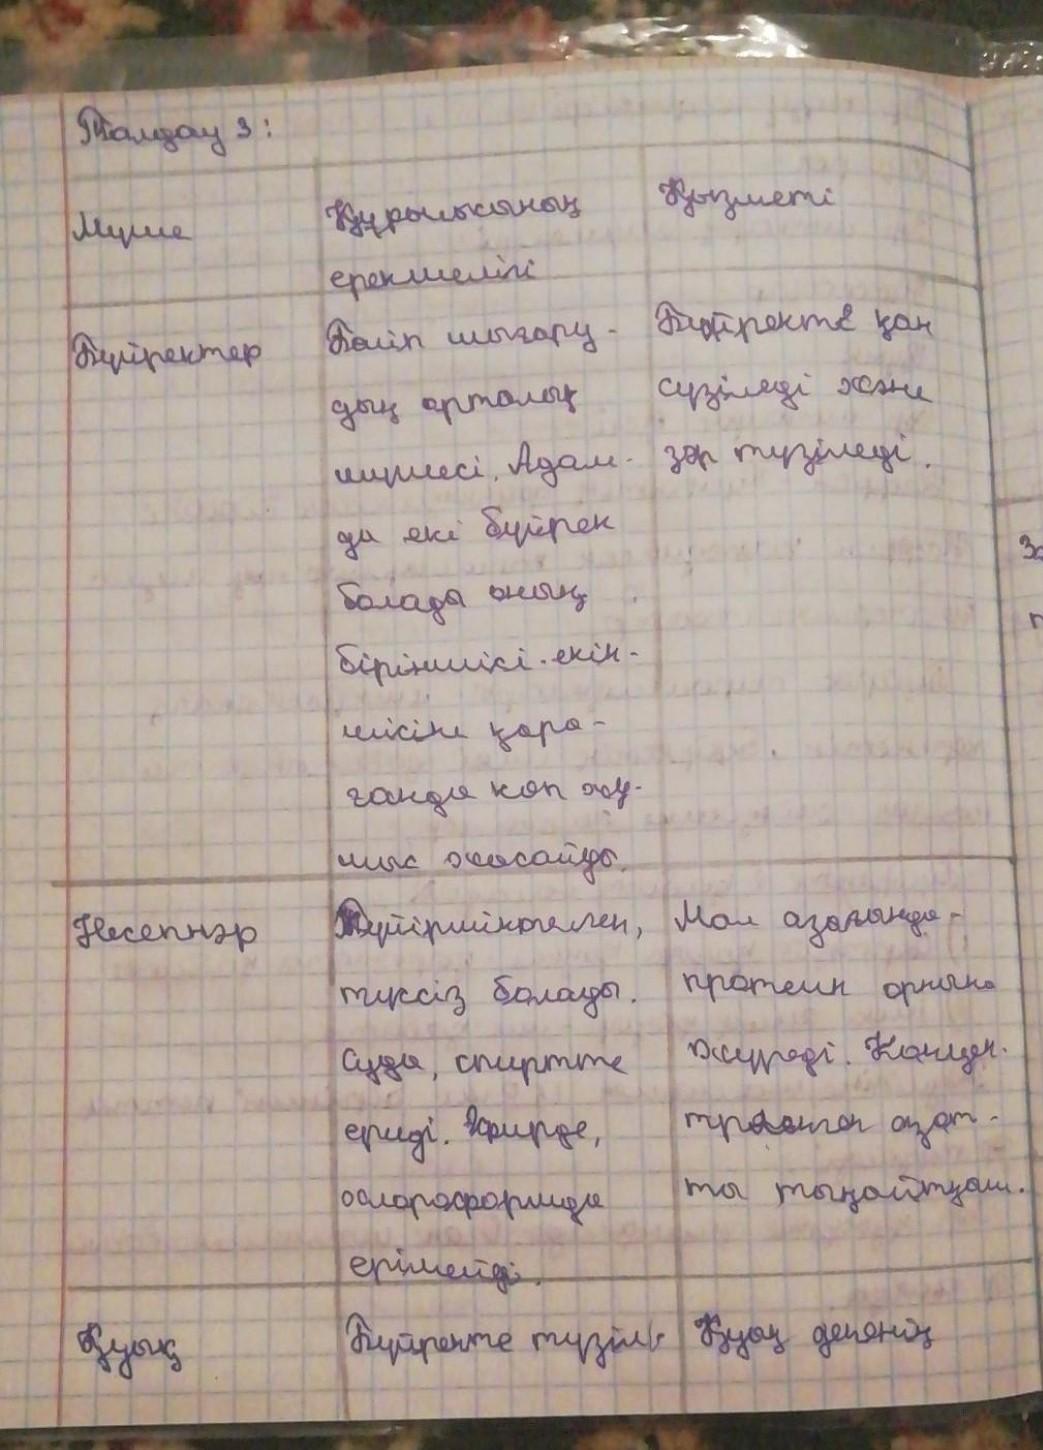 Талдау 3:
Мүше
Құрылысының
ерекшелігі
Қызметі
Бүйректер
Бөліп шығару-
дың орталық
мүшесі. Адам-
да екі бүйрек
болады оның
біріншісі екін-
шісіне қара-
ғанда көп жұ-
мыс жасайды.
Бүйректе қан
сүзіледі және
зәр түзіледі.
Несепнәр
Түйіршіктелген,
түксіз болады.
Суда, спиртте
ериді. Эфирде,
хлороформда
ерімейді.
Мал азағында-
протеин орнына
жүреді. Концен-
трленген азот-
ты тыңайтқыш.
Қуық
Бүйректе түзіл
Қуық дененің